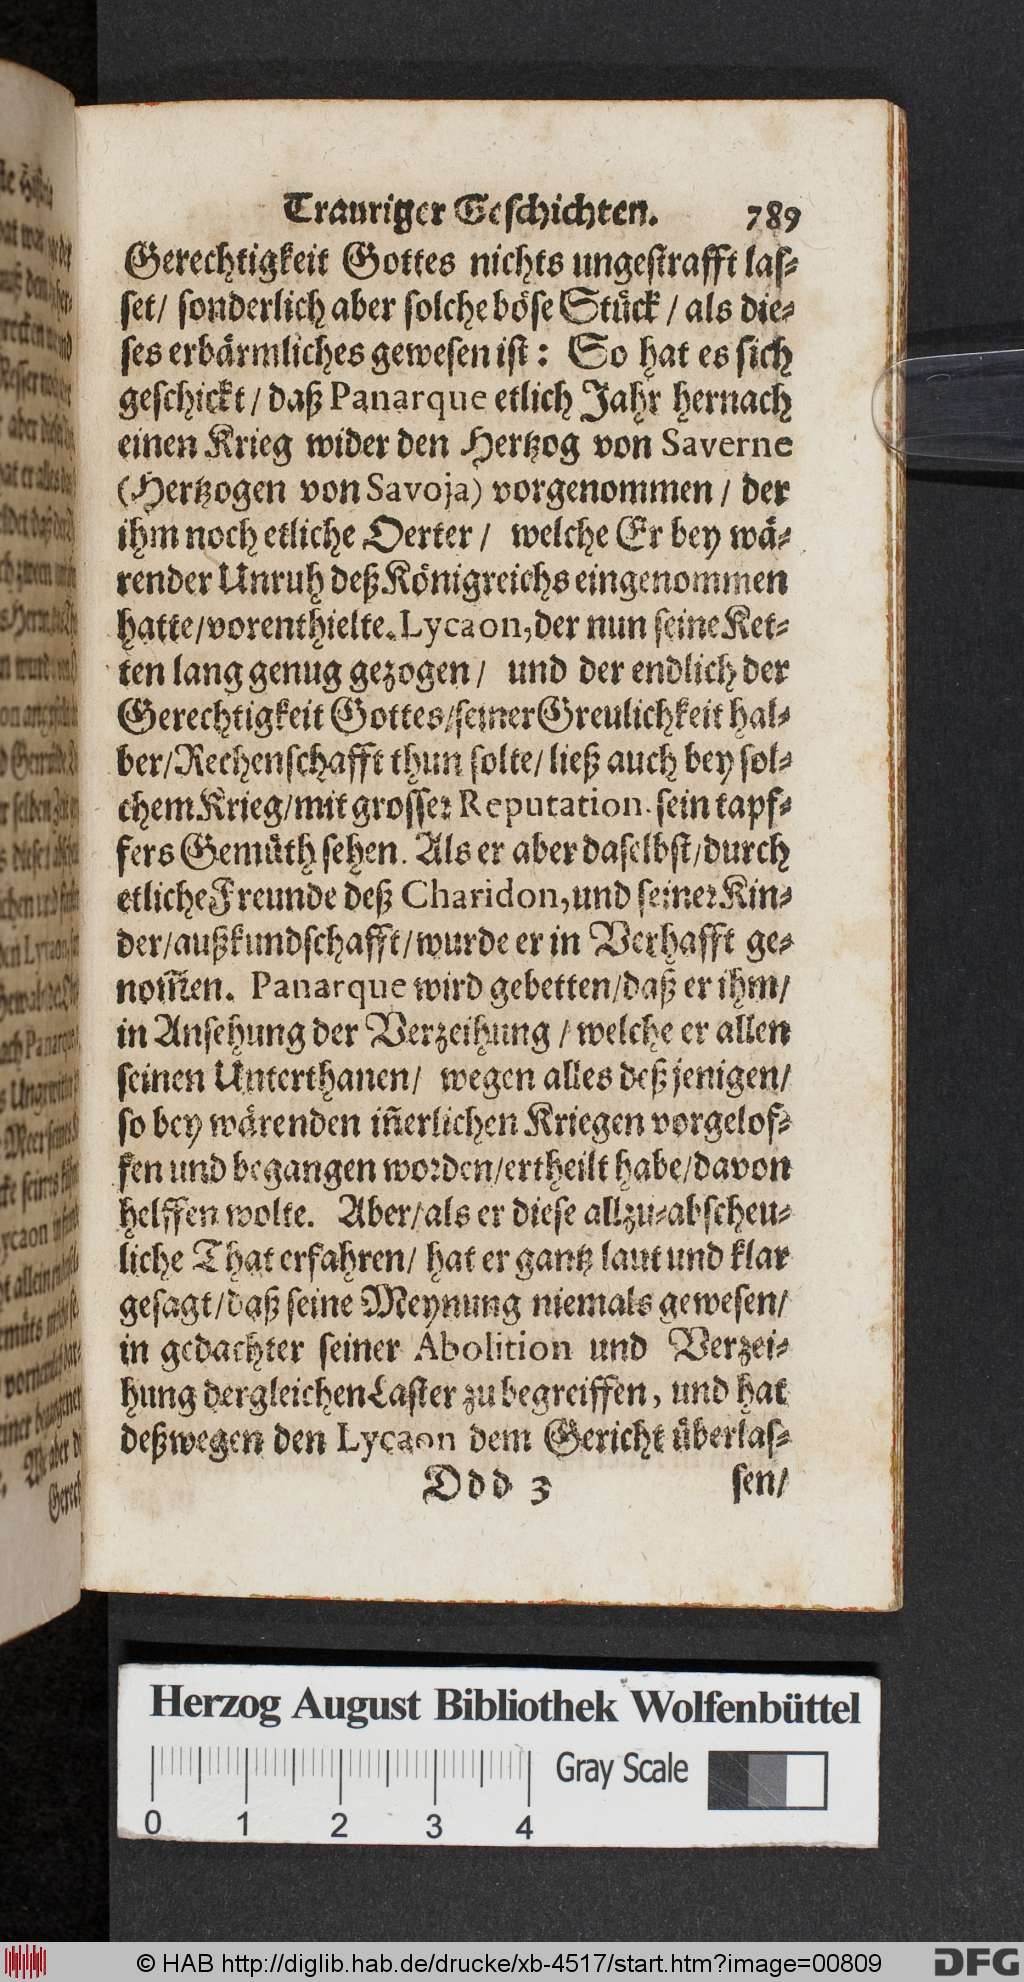 Trauriger Geschichten. 789
Gerechtigkeit Gottes nichts ungestrafft las-
set/ sonderlich aber solche böse Stück / als die-
ses erbärmliches gewesen ist: So hat es sich
geschickt / daß Panarque etlich Jahr hernach
einen Krieg wider den Hertzog von Saverne
(Hertzogen von Savoja) vorgenommen / der
ihm noch etliche Oerter / welche Er bey wä-
render Unruh deß Königreichs eingenommen
hatte/vorenthielte. Lycaon, der nun seine Ket-
ten lang genug gezogen / und der endlich der
Gerechtigkeit Gottes/seiner Greulichkeit hal-
ber/Rechenschafft thun solte/ ließ auch bey sol-
chem Krieg/mit grosser Reputation sein tapf-
fers Gemüth sehen. Als er aber daselbst/durch
etliche Freunde deß Charidon, und seiner Kin-
der/außkundschafft/wurde er in Verhafft ge-
nom̃en. Panarque wird gebetten/daß er ihm/
in Ansehung der Verzeihung / welche er allen
seinen Unterthanen/ wegen alles deßjenigen/
so bey wärenden iñerlichen Kriegen vorgelof-
fen und begangen worden/ertheilt habe/davon
helffen wolte. Aber/als er diese allzu-abscheu-
liche That erfahren/ hat er gantz laut und klar
gesagt/daß seine Meynung niemals gewesen/
in gedachter seiner Abolition und Verzei-
hung dergleichen Laster zu begreiffen, und hat
deßwegen den Lycaon dem Gericht überlas-
Ddd 3 sen/
Herzog August Bibliothek Wolfenbüttel
Gray Scale
0 1 2 3 4
© HAB http://diglib.hab.de/drucke/xb-4517/start.htm?image=00809
DFG